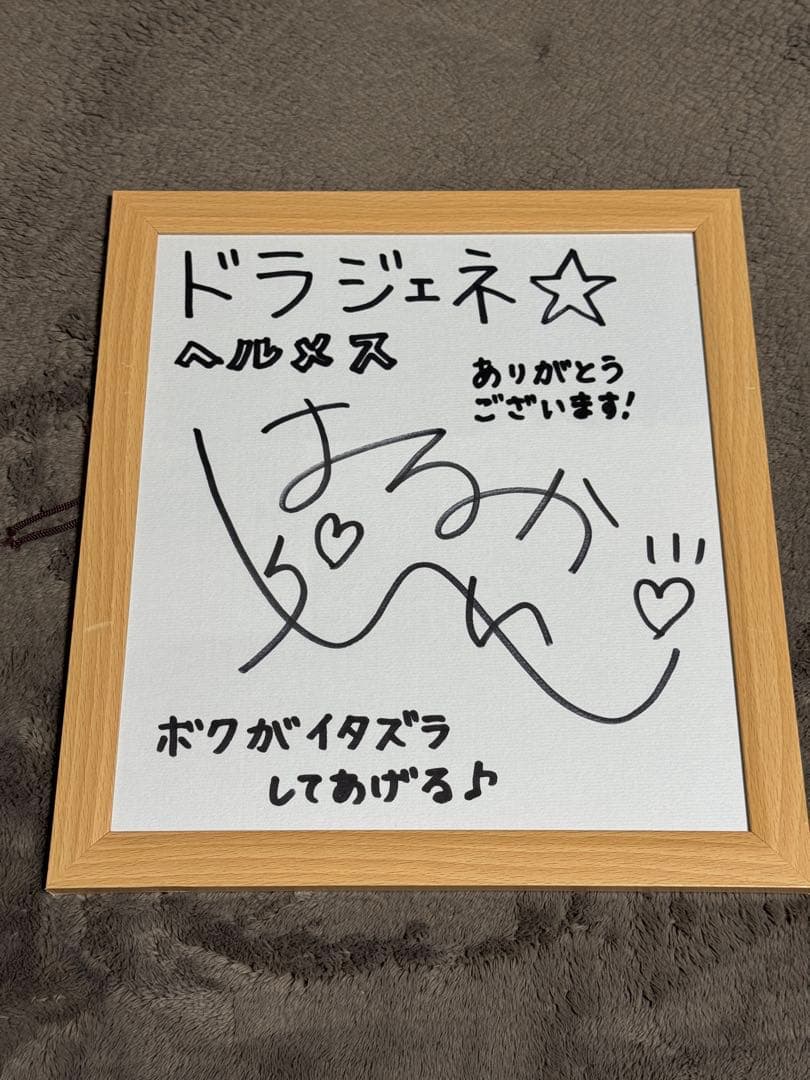 ドラジェネ☆
ヘルメス
ありがとう
ございます!
はるか
ボクがイタズラ
してあげる♪